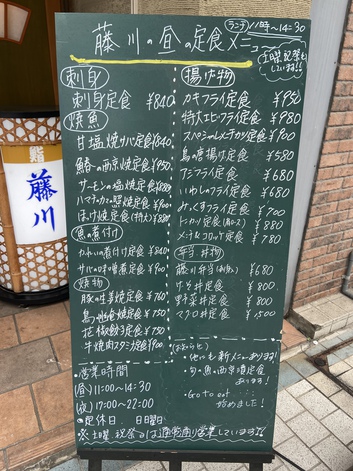 藤川の昼の定食メニュー
ランチ 11時〜14:30
土曜、祝祭も
している!!
刺身
刺身定食 ¥840
焼魚
甘塩焼サバ定食 ¥840
鰆の西京焼定食 ¥950
サーモンの塩焼定食 ¥880
ハマチカマの照焼定食 ¥900
ほっけ焼定食(特大) ¥880
魚の煮付け
カレイの煮付け定食 ¥840
サバの味噌煮定食 ¥900
焼物
豚の生姜焼定食 ¥760
定食 ¥750
餃子定食 ¥750
牛焼肉スタミナ定食 ¥900
揚げ物
カキフライ定食 ¥950
特大エビフライ定食 ¥980
スペシャルメンチカツ定食 ¥900
鳥の唐揚げ定食 ¥580
アジフライ定食 ¥680
いわしのフライ定食 ¥680
ミックスフライ定食 ¥700
トンカツ定食(肩ロース) ¥880
メンチ&コロッケ定食 ¥780
弁当 丼物
藤川弁当 ¥680
丼定食 ¥800
野菜丼定食 ¥800
マグロ丼定食 ¥1500
(お知らせ)
・他にも新メニューあります!
・旬の魚の西京焼定食
あります!
・Go to eat
始めました!
・営業時間
(昼) 11:00〜14:30
(夜) 17:00〜22:00
・定休日 日曜日
※土曜、祝祭も通常通り営業しています!!
鮨
藤川